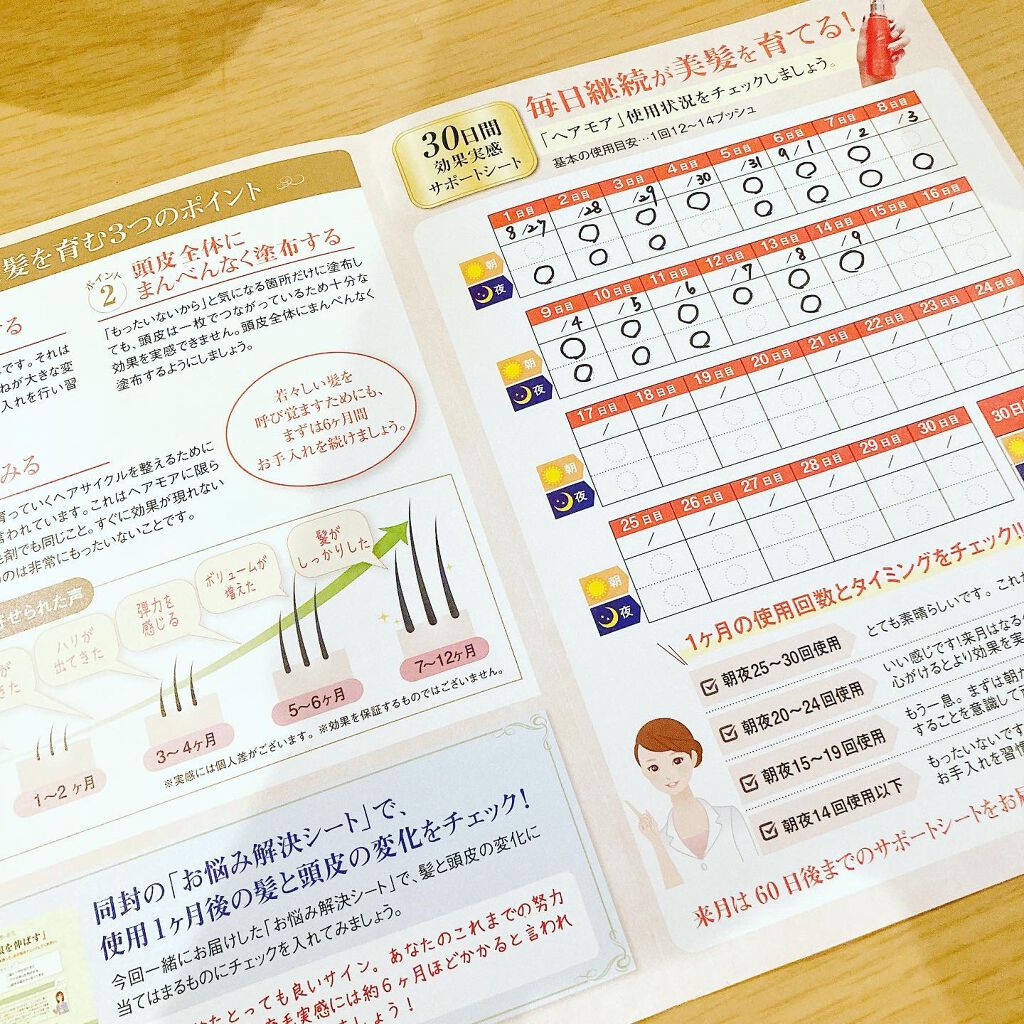 髪を育む3つのポイント
ポイント
2
頭皮全体に
まんべんなく塗布する
「もったいないから」と気になる箇所だけに塗布し
ても、頭皮は一枚でつながっているため十分な
効果を実感できません。頭皮全体にまんべんなく
塗布するようにしましょう。
ける
です。それは
ねが大きな変
入れを行い習
若々しい髪を
呼び覚ますためにも、
まずは6ヶ月間
お手入れを続けましょう。
みる
育っていくヘアサイクルを整えるために
言われています。これはヘアモアに限ら
毛剤でも同じこと。すぐに効果が現れない
のは非常にもったいないことです。
せられた声
ハリが
出てきた
弾力を
感じる
ボリュームが
増えた
髪が
しっかりした
1〜2ヶ月
3〜4ヶ月
5〜6ヶ月
7〜12ヶ月
※実感には個人差がございます。※効果を保証するものではございません。
同封の「お悩み解決シート」で、
使用1ヶ月後の髪と頭皮の変化をチェック!
今回一緒にお届けした「お悩み解決シート」で、髪と頭皮の変化に
当てはまるものにチェックを入れてみましょう。
たとっても良いサイン。あなたのこれまでの努力
実感には約6ヶ月ほどかかると言われ
ましょう!
30日間
効果実感
サポートシート
毎日継続が美髪を育てる!
「ヘアモア」使用状況をチェックしましょう。
基本の使用目安…1回12〜14プッシュ
1日目 2日目 3日目 4日目 5日目 6日目 7日目 8日目
8/27 /28 /29 /30 /31 9/1 /2 /3
朝
夜
9日目 10日目 11日目 12日目 13日目 14日目 15日目 16日目
/4 /5 /6 /7 /8 /9 / /
朝
夜
17日目 18日目 19日目 20日目 21日目 22日目 23日目 24日目
朝
夜
25日目 26日目 27日目 28日目 29日目 30日目
朝
夜
30日
1ヶ月の使用回数とタイミングをチェック!!
朝夜25〜30回使用
とても素晴らしいです。これ
朝夜20〜24回使用
いい感じです!来月はなる
心がけるとより効果を実
朝夜15〜19回使用
もう一息。まずは朝か
することを意識して
朝夜14回使用以下
もったいないです
お手入れを習慣
来月は60日後までのサポートシートをお届